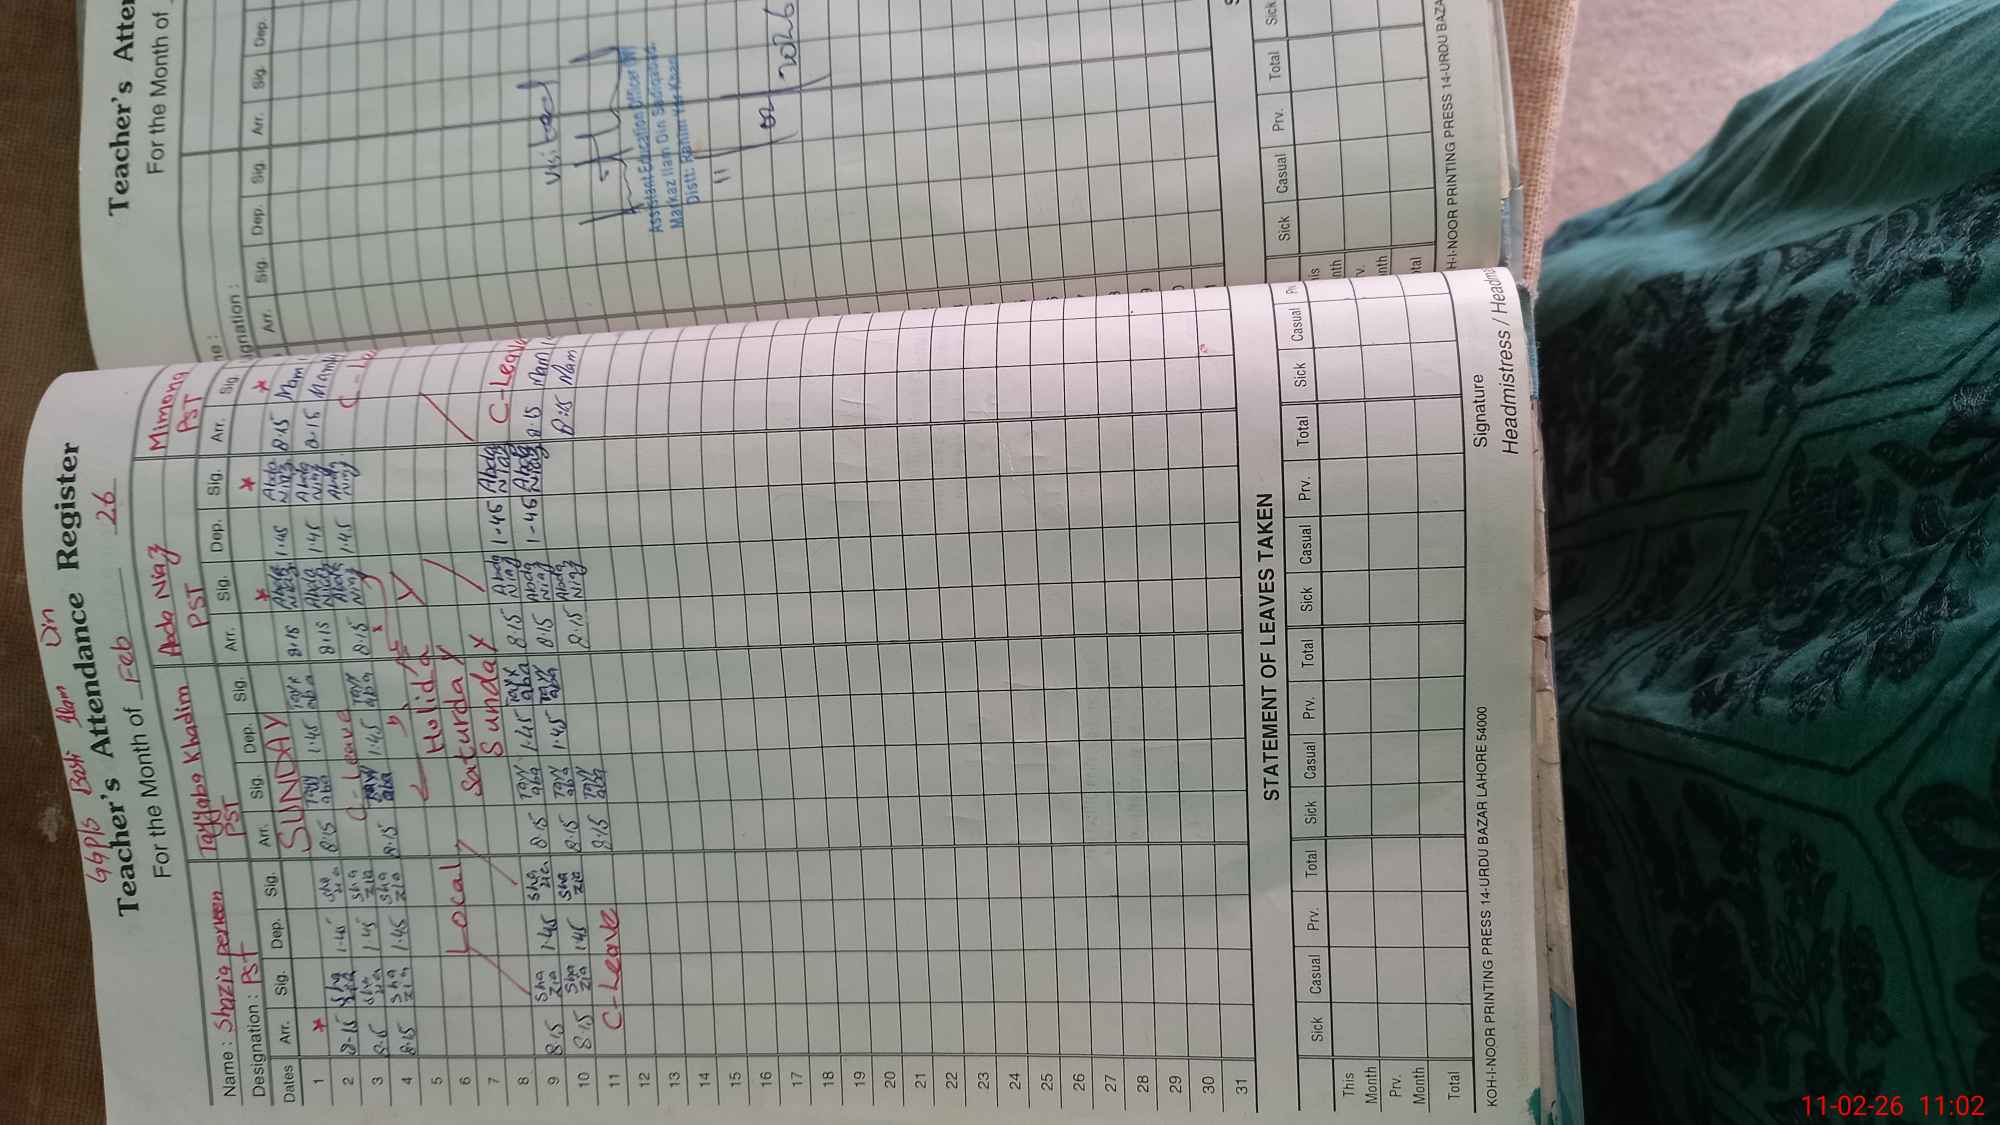 GGP/S Basti Ilam Din
Teacher's Attendance Register
For the Month of Feb 26
Name : Shazia perveen Tayyaba Khadim Abda Niaz Mimona
Designation : PST PST PST PST
Dates Arr. Sig. Dep. Sig. Arr. Sig. Dep. Sig. Arr. Sig. Dep. Sig. Arr. Sig
1 * SUNDAY * * *
2 8-15 Sha zia 1.45 Sha zia 8.15 Tayy aba 1.45 Tayy aba 8.15 Abda Niaz 1.45 Abda Niaz 8.15 Mam
3 8.15 Sha zia 1.45 Sha zia C-Leave 8.15 Abda Niaz 1.45 Abda Niaz 8.15 Mam
4 8.15 Sha zia 1.45 Sha zia 8.15 Tayy aba 1.45 Tayy aba 8.15 Abda Niaz 1.45 Abda Niaz
5 8.15
6 Local Holiday
7 Saturday
8 Sunday
9 8.15 Sha zia 1.45 Sha zia 8.15 Tayy aba 1.45 Tayy aba 8.15 Abda Niaz 1-45 Abda Niaz C-Leave
10 8.15 Sha zia 1.45 Sha zia 8.15 Tayy aba 1.45 Tayy aba 8.15 Abda Niaz 1-45 Abda Niaz 8.15 Mam
11 C-Leave 8.15 Tayy aba 8.15 Abda Niaz 8.15 Mam
12
13
14
15
16
17
18
19
20
21
22
23
24
25
26
27
28
29
30
31
STATEMENT OF LEAVES TAKEN
Sick Casual Prv. Total Sick Casual Prv. Total Sick Casual Prv. Total Sick Casual
This
Month
Prv.
Month
Total
KOH-I-NOOR PRINTING PRESS 14-URDU BAZAR LAHORE 54000
Signature
Headmistress / Headma
Teacher's Atten
For the Month of
me :
gnation :
Arr. Sig. Dep. Sig. Arr. Sig. Dep.
Visited
Assistant Education Officer (W)
Markaz Ilam Din Sadiqabad
Distt: Rahim Yar Khan
11/02/2026
Sick Casual Prv. Total Sick
is
nth
v.
nth
tal
H-I-NOOR PRINTING PRESS 14-URDU BAZA
11-02-26 11:02